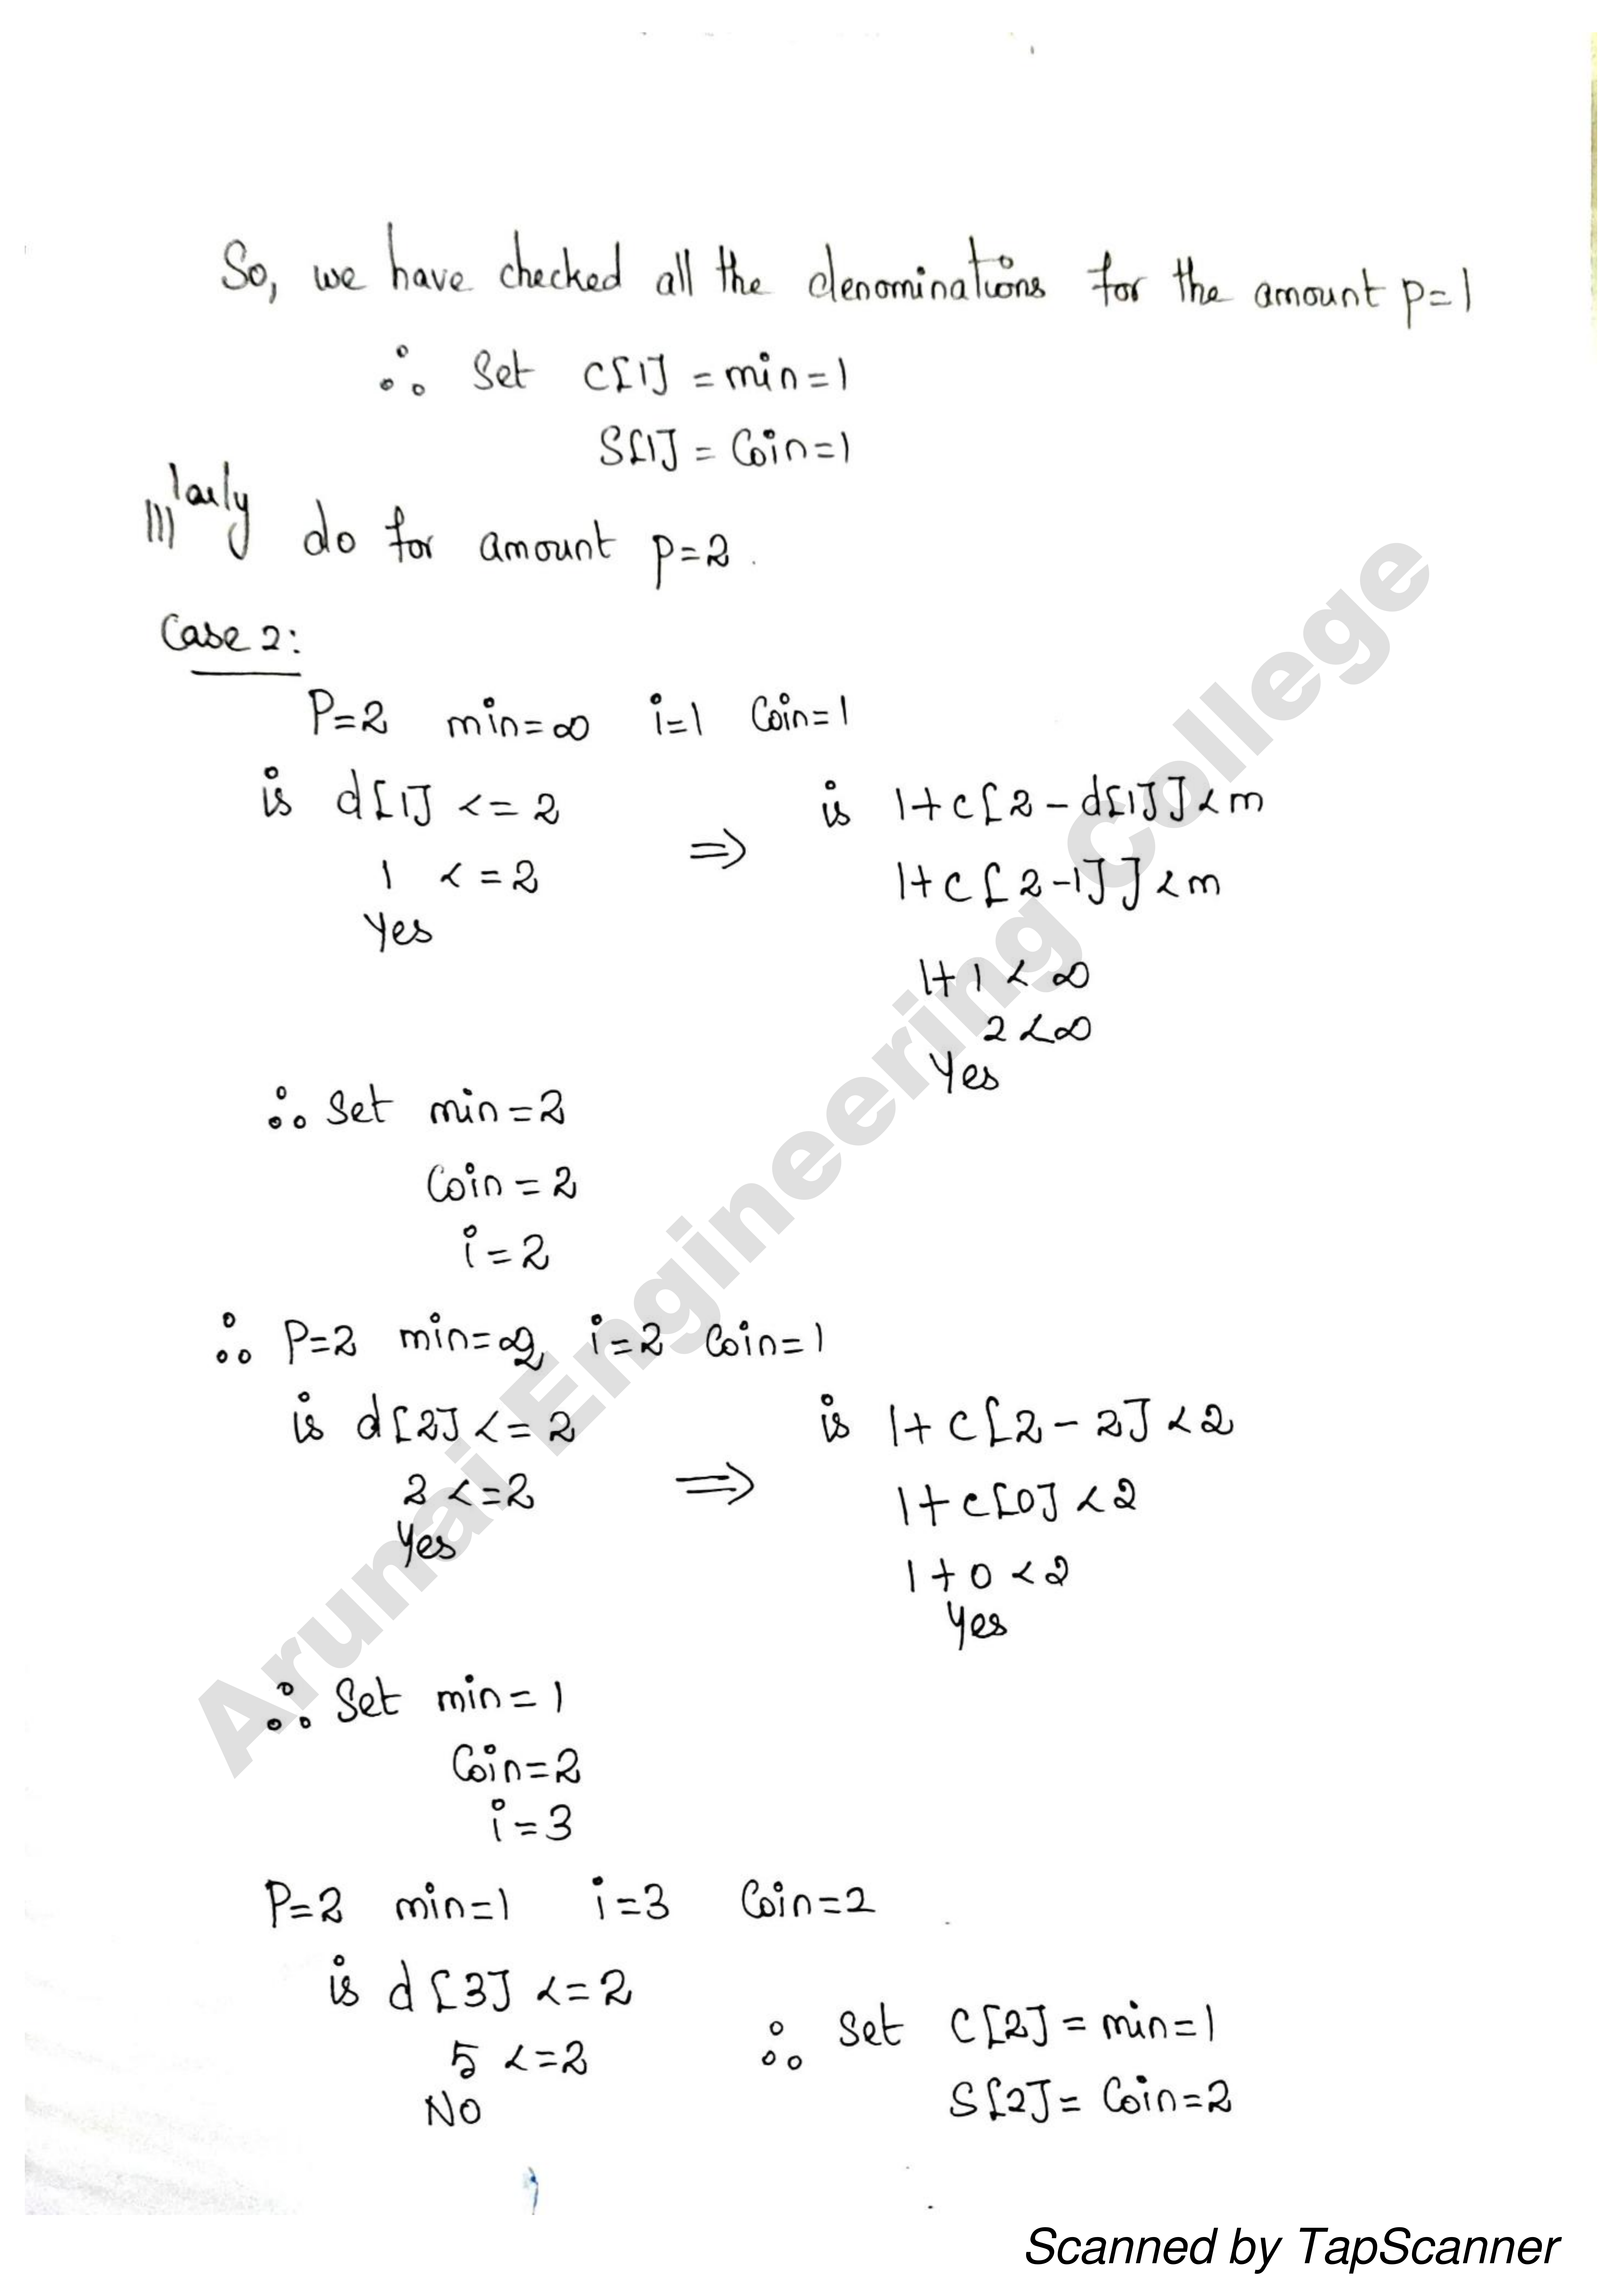 So, we have checked all the denominations for the amount p=1
∴ Set C[1] = min=1
S[1] = Coin=1
|||larly do for amount p=2.
Case 2:
P=2 min=∞ i=1 Coin=1
is d[1] <= 2
1 <= 2
Yes
⇒
is 1+c[2-d[1]]<m
1+c[2-1]]<m
1+1<∞
2<∞
Yes
∴ Set min=2
Coin=2
i=2
∴ P=2 min=2, i=2 Coin=1
is d[2]<=2
2<=2
Yes
⇒
is 1+c[2-2]<2
1+c[0]<2
1+0<2
Yes
∴ Set min=1
Coin=2
i=3
P=2 min=1 i=3 Coin=2
is d[3] <=2
5 <=2
NO
∴ Set C[2]=min=1
S[2]= Coin=2
Arunai Engineering College
Scanned by TapScanner